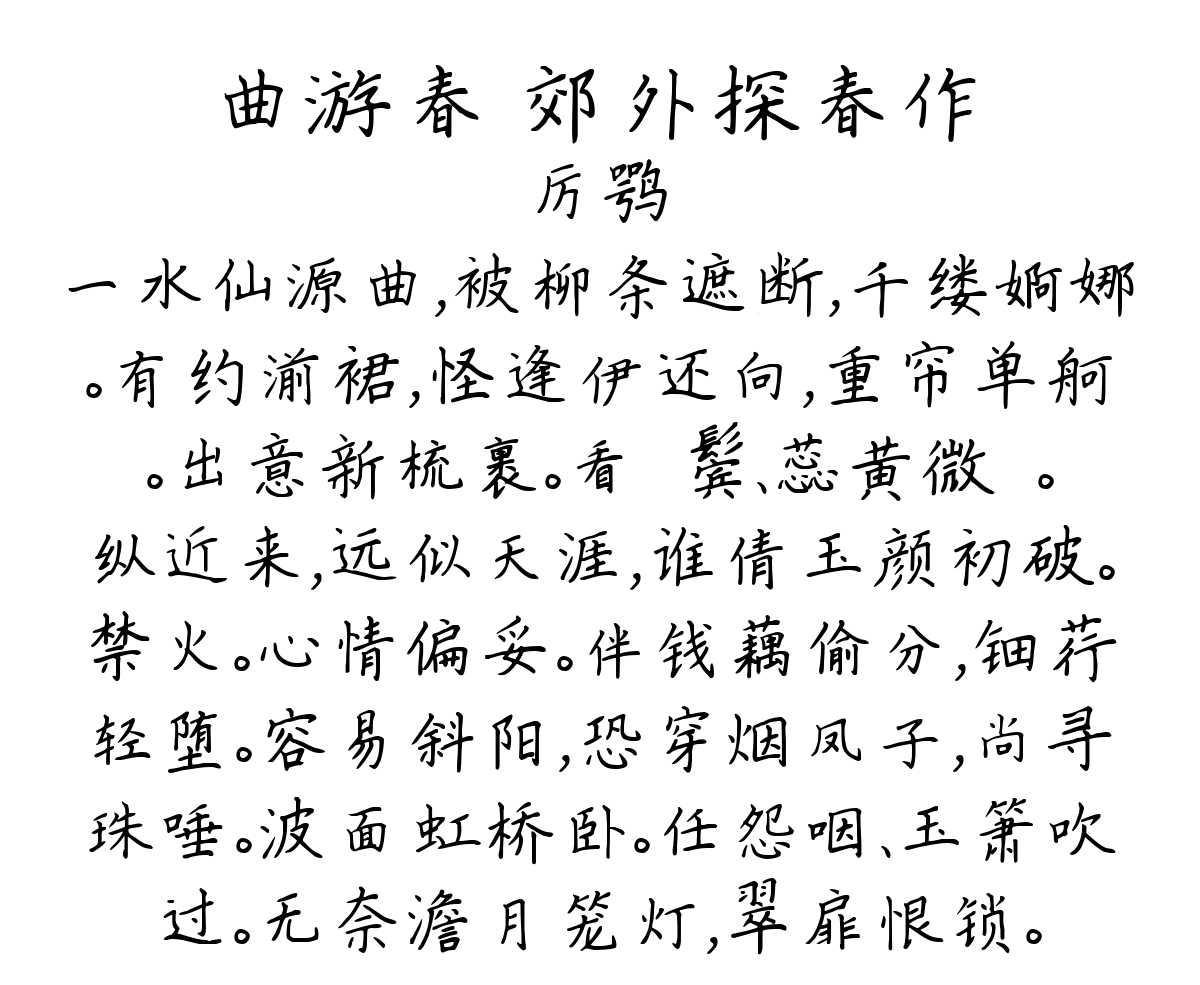 曲游春 郊外探春作
厉鹗
一水仙源曲,被柳条遮断,千缕婀娜
。有约湔裙,怪逢伊还向,重帘单舸
。出意新梳裹。看 鬓、蕊黄微 。
纵近来,远似天涯,谁倩玉颜初破。
禁火。心情偏妥。伴钱藕偷分,钿荇
轻堕。容易斜阳,恐穿烟凤子,尚寻
珠唾。波面虹桥卧。任怨咽、玉箫吹
过。无奈澹月笼灯,翠扉恨锁。